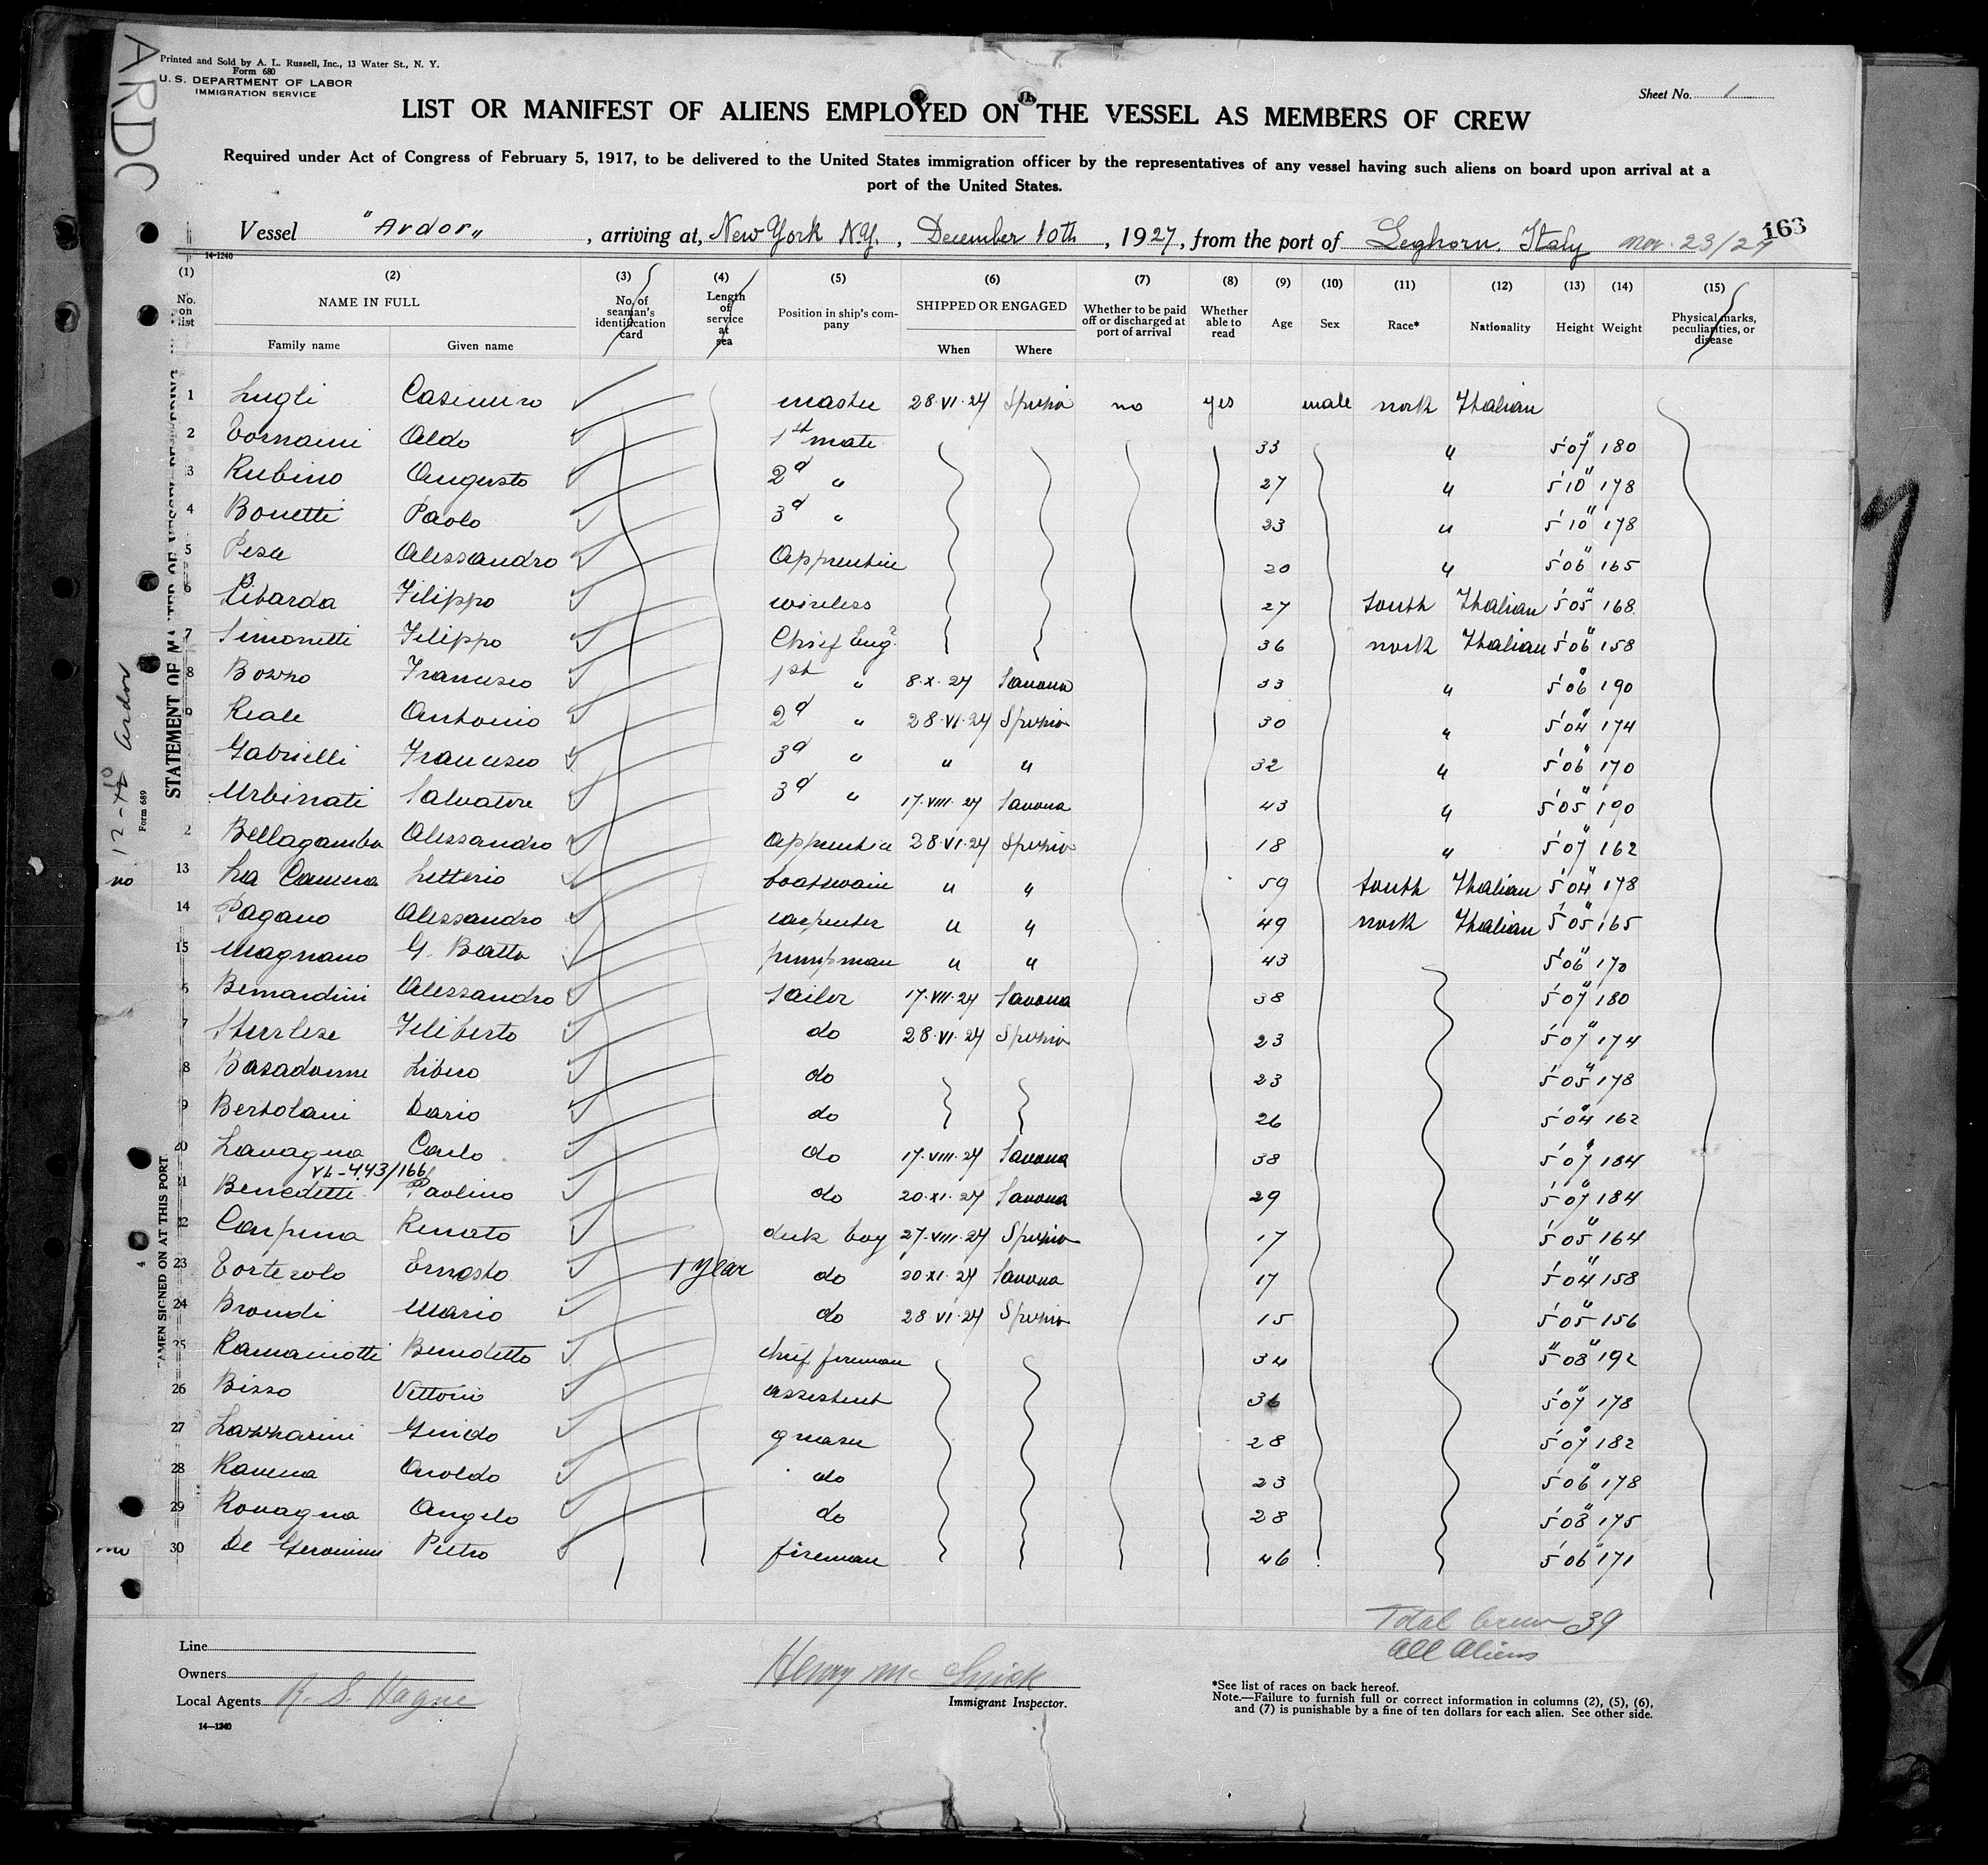 ARDC
Printed and Sold by A. L. Russell, Inc., 13 Water St., N. Y.
Form 680
U. S. DEPARTMENT OF LABOR
IMMIGRATION SERVICE
Sheet No. 1
LIST OR MANIFEST OF ALIENS EMPLOYED ON THE VESSEL AS MEMBERS OF CREW
Required under Act of Congress of February 5, 1917, to be delivered to the United States immigration officer by the representatives of any vessel having such aliens on board upon arrival at a
port of the United States.
163
Vessel "Ardor„ , arriving at, New York N.Y. , December 10th , 1927, from the port of Leghorn, Italy Nov. 23/27
14-1240
(1) (2) (3) (4) (5) (6) (7) (8) (9) (10) (11) (12) (13) (14) (15)
No. on list NAME IN FULL Family name Given name No. of seaman's identification card Length of service at sea Position in ship's company SHIPPED OR ENGAGED When Where Whether to be paid off or discharged at port of arrival Whether able to read Age Sex Race* Nationality Height Weight Physical marks, peculiarities, or disease
1 Lugli Casimiro master 28·VI·27 Spezia no yes male north Italian
2 Tornaini Aldo 1st mate 33 " 5'07" 180
3 Rubino Augusto 2d " 27 " 5'10" 178
4 Bonetti Paolo 3d " 23 " 5'10" 178
5 Pesce Alessandro Apprentice 20 " 5'06" 165
6 Libarda Filippo wireless 27 south Italian 5'05" 168
7 Simonetti Filippo Chief Eng. 36 north Italian 5'06" 158
8 Bozzo Francesco 1st " 8·X·27 Savona 33 " 5'06" 190
9 Reale Antonio 2d " 28·VI·27 Spezia 30 " 5'04" 174
Gabrielli Francesco 3d " " " 32 " 5'06" 170
Urbinati Salvatore 3d " 17·VIII·27 Savona 43 " 5'05" 190
2 Bellagamba Alessandro apprentice 28·VI·27 Spezia 18 " 5'07" 162
no 13 La Camera Letterio boatswain " " 59 south Italian 5'04" 178
14 Pagano Alessandro carpenter " " 49 north Italian 5'05" 165
15 Magnano G. Batta pumpman " " 43 5'06" 170
6 Bernardini Alessandro sailor 17·VIII·27 Savona 38 5'07" 180
7 Sturlese Filiberto do 28·VI·27 Spezia 23 5'07" 174
8 Basadonne Libero do 23 5'05" 178
9 Bertolani Dario do 26 5'04" 162
20 Lavagna Carlo do 17·VIII·27 Savona 38 5'07" 184
VL-443/166
21 Benedetti Paolino do 20·XI·27 Savona 29 5'07" 184
22 Carpena Renato deck boy 27·VIII·27 Spezia 17 5'05" 164
23 Tortezolo Ernesto 1 year do 20·XI·27 Savona 17 5'04" 158
24 Brondi Mario do 28·VI·27 Spezia 15 5'05" 156
25 Ramainotti Benedetto chief fireman 34 5"08" 192
26 Bisso Vittorio assistent 36 5'07" 178
27 Lazzarini Guido greaser 28 5'07" 182
28 Ravena Aroldo do 23 5'06" 178
29 Rovagna Angelo do 28 5'08" 175
no 30 De Geronimi Pietro fireman 46 5'06" 171
Total Crew 39
All Aliens
Line
Owners
Local Agents R. S. Hague
14—1240
Henry Mc
Immigrant Inspector.
*See list of races on back hereof.
Note.—Failure to furnish full or correct information in columns (2), (5), (6),
and (7) is punishable by a fine of ten dollars for each alien. See other side.
Form 689
4